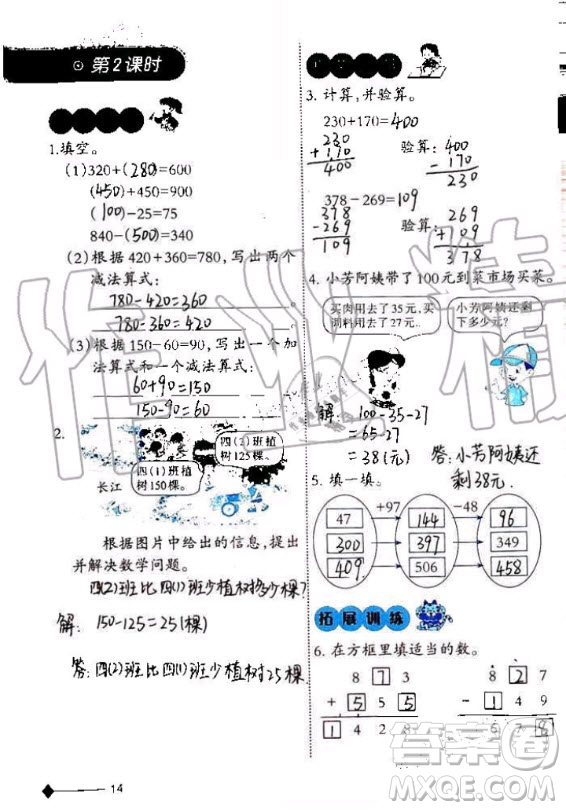 第2课时
1.填空。
(1)320+(280)=600
(450)+450=900
(100)-25=75
840-(500)=340
(2)根据 420+360=780,写出两个
减法算式:
780-420=360
780-360=420
(3)根据 150-60=90,写出一个加
法算式和一个减法算式:
60+90=150
150-90=60
2.
四(2)班植
树125棵。
四(1)班植
树150棵。
长江
根据图片中给出的信息,提出
并解决数学问题。
四(2)班比四(1)班少植树多少棵?
解: 150-125=25(棵)
答:四(2)班比四(1)班少植树25棵.
14
3. 计算,并验算。
230+170=400
230 验算: 400
+170 -170
400 230
378-269=109
378 验算: 269
-269 +109
109 378
4. 小芳阿姨带了100元到菜市场买菜。
买肉用去了35元,买
调料用去了27元。
小芳阿姨还剩
下多少元?
解: 100-35-27
=65-27
=38(元)
答:小芳阿姨还
剩38元.
5. 填一填。
+97 -48
47 144 96
300 397 349
409 506 458
拓展训练
6. 在方框里填适当的数。
8 7 3 8 2 7
+ 5 5 5 - 1 4 9
1 4 2 8 6 7 8
作业精
答案圈
MXQE.COM